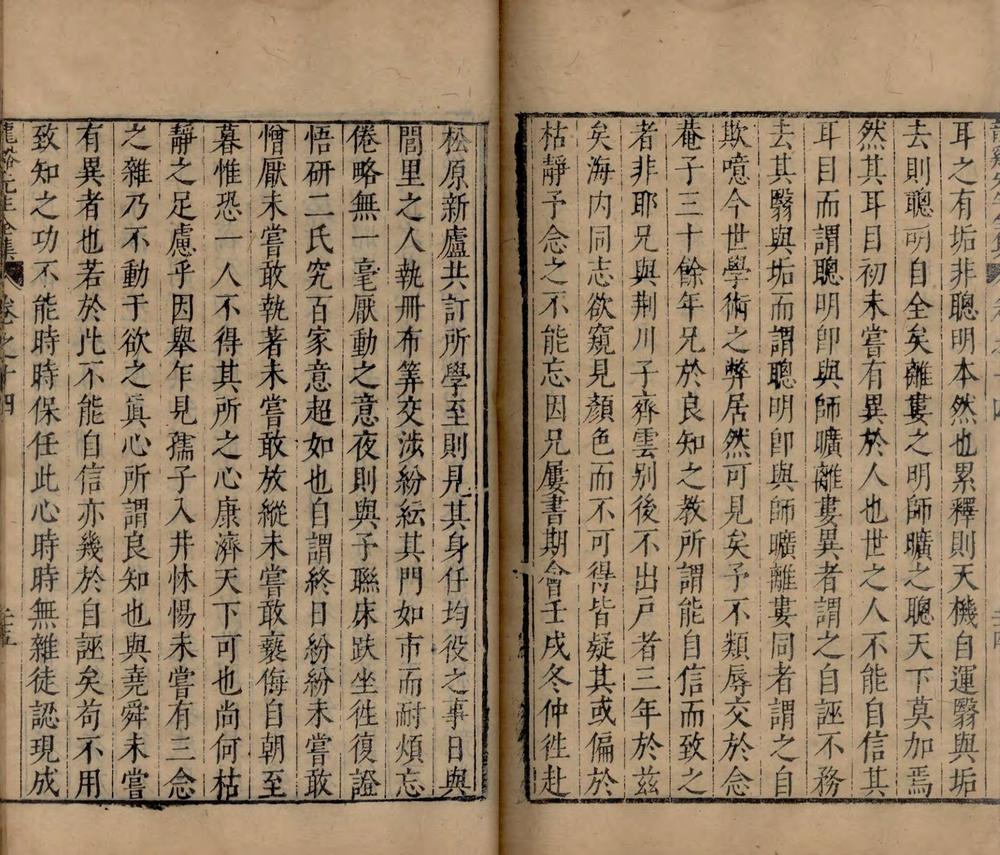 耳之有垢非聰明本然也累釋則天機自運翳與垢
去則聰明自全矣離婁之明師曠之聰天下莫加焉
然其耳目初未嘗有異於人也世之人不能自信其
耳目而謂聰明卽與師曠離婁異者謂之自誣不務
去其翳與垢而謂聰明卽與師曠離婁同者謂之自
欺噫今世學術之弊居然可見矣予不類辱交於念
菴子三十餘年兄於良知之教所謂能自信而致之
者非耶兄與荆川子齊雲别後不出戸者三年於茲
矣海内同志欲窺見顏色而不可得皆疑其或偏於
枯靜予念之不能忘因兄屢書期會壬戌冬仲徃赴
松原新廬共訂所學至則見其身任均役之事日與
閭里之人執冊布筭交涉紛紜其門如市而耐煩忘
倦略無一毫厭動之意夜則與予聯床趺坐徃復證
悟研二氏究百家意超如也自謂終日紛紛未嘗敢
憎厭未嘗敢執著未嘗敢放縱未嘗敢褻侮自朝至
暮惟恐一人不得其所之心康濟天下可也尚何枯
靜之足慮乎因舉乍見孺子入井怵惕未嘗有三念
之雜乃不動于欲之眞心所謂良知也與堯舜未嘗
有異者也若於此不能自信亦幾於自誣矣苟不用
致知之功不能時時保任此心時時無雜徒認現成
龍谿先生全集 卷之十四